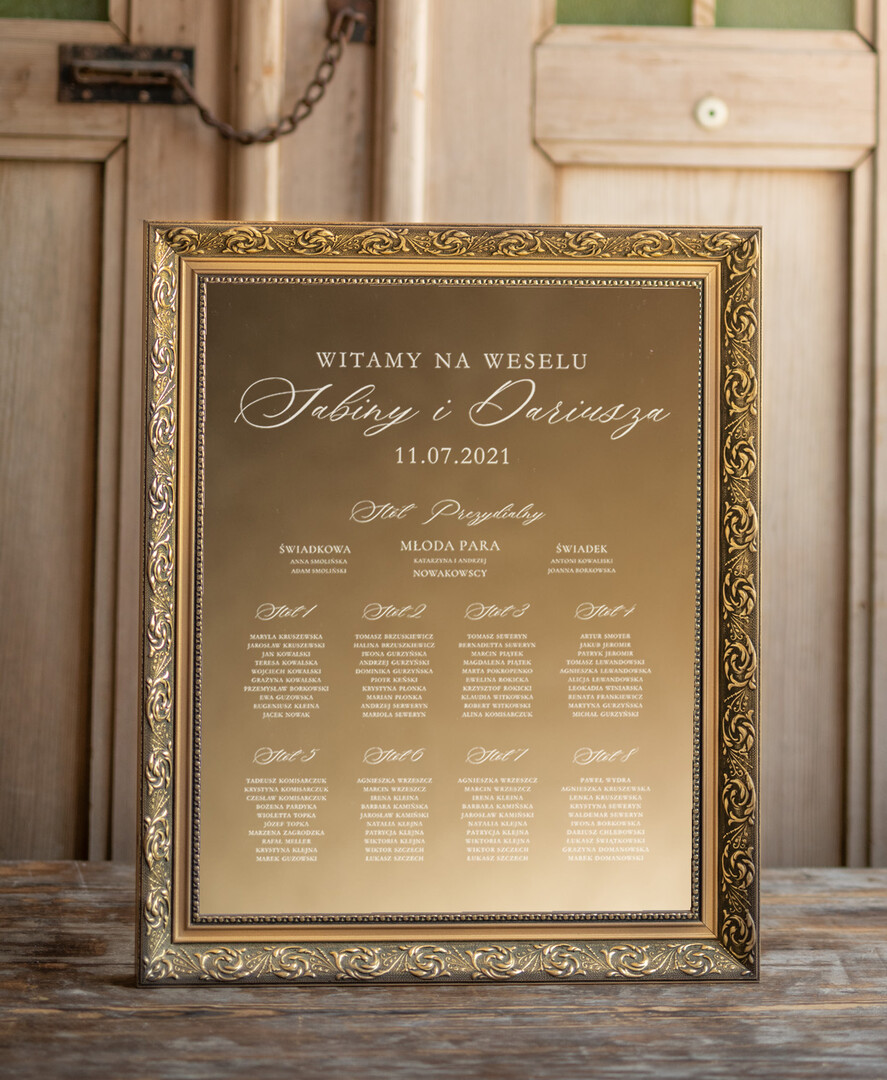 WITAMY NA WESELU
Sabiny i Dariusza
11.07.2021
Stół Prezydialny
ŚWIADKOWA
ANNA SMOLIŃSKA
ADAM SMOLIŃSKI
MŁODA PARA
KATARZYNA I ANDRZEJ
NOWAKOWSCY
ŚWIADEK
ANTONI KOWALSKI
JOANNA BORKOWSKA
Stół 1
MARYLA KRUSZEWSKA
JAROSŁAW KRUSZEWSKI
JAN KOWALSKI
TERESA KOWALSKA
WOJCIECH KOWALSKI
GRAŻYNA KOWALSKA
PRZEMYSŁAW BORKOWSKI
EWA GUZOWSKA
EUGENIUSZ KLEJNA
JACEK NOWAK
Stół 2
TOMASZ BRZUSKIEWICZ
HALINA BRZUSKIEWICZ
IWONA GURZYŃSKA
ANDRZEJ GURZYŃSKI
DOMINIKA GURZYŃSKA
PIOTR KEŃSKI
KRYSTYNA PŁONKA
MARIAN PŁONKA
ANDRZEJ SERWERYN
MARIOLA SEWERYN
Stół 3
TOMASZ SEWERYN
BERNADETTA SEWERYN
MARCIN PIĄTEK
MAGDALENA PIĄTEK
MARTA POKROPENKO
EWELINA ROKICKA
KRZYSZTOF ROKICKI
KLAUDIA WITKOWSKA
ROBERT WITKOWSKI
ALINA KOMISARCZUK
Stół 4
ARTUR SMOTER
JAKUB JEROMIR
PATRYK JEROMIR
TOMASZ LEWANDOWSKI
AGNIESZKA LEWANDOWSKA
ALICJA LEWANDOWSKA
LEOKADIA WINIARSKA
RENATA FRANKIEWICZ
MARTYNA GURZYŃSKA
MICHAŁ GURZYŃSKI
Stół 5
TADEUSZ KOMISARCZUK
KRYSTYNA KOMISARCZUK
CZESŁAW KOMISARCZUK
BOŻENA PARDYKA
WIOLETTA TOPKA
JÓZEF TOPKA
MARZENA ZAGRODZKA
RAFAŁ MELLER
KRYSTYNA KLEJNA
MAREK GUZOWSKI
Stół 6
AGNIESZKA WRZESZCZ
MARCIN WRZESZCZ
IRENA KLEJNA
BARBARA KAMIŃSKA
JAROSŁAW KAMIŃSKI
NATALIA KLEJNA
PATRYCJA KLEJNA
WIKTORIA KLEJNA
WIKTOR SZCZECH
ŁUKASZ SZCZECH
Stół 7
AGNIESZKA WRZESZCZ
MARCIN WRZESZCZ
IRENA KLEJNA
BARBARA KAMIŃSKA
JAROSŁAW KAMIŃSKI
NATALIA KLEJNA
PATRYCJA KLEJNA
WIKTORIA KLEJNA
WIKTOR SZCZECH
ŁUKASZ SZCZECH
Stół 8
PAWEŁ WYDRA
AGNIESZKA KRUSZEWSKA
LENKA KRUSZEWSKA
KRYSTYNA SEWERYN
WALDEMAR SEWERYN
IWONA BORKOWSKA
DARIUSZ CHLEBOWSKI
ŁUKASZ ŚWIĄTKOWSKI
GRAŻYNA DOMANOWSKA
MAREK DOMANOWSKI